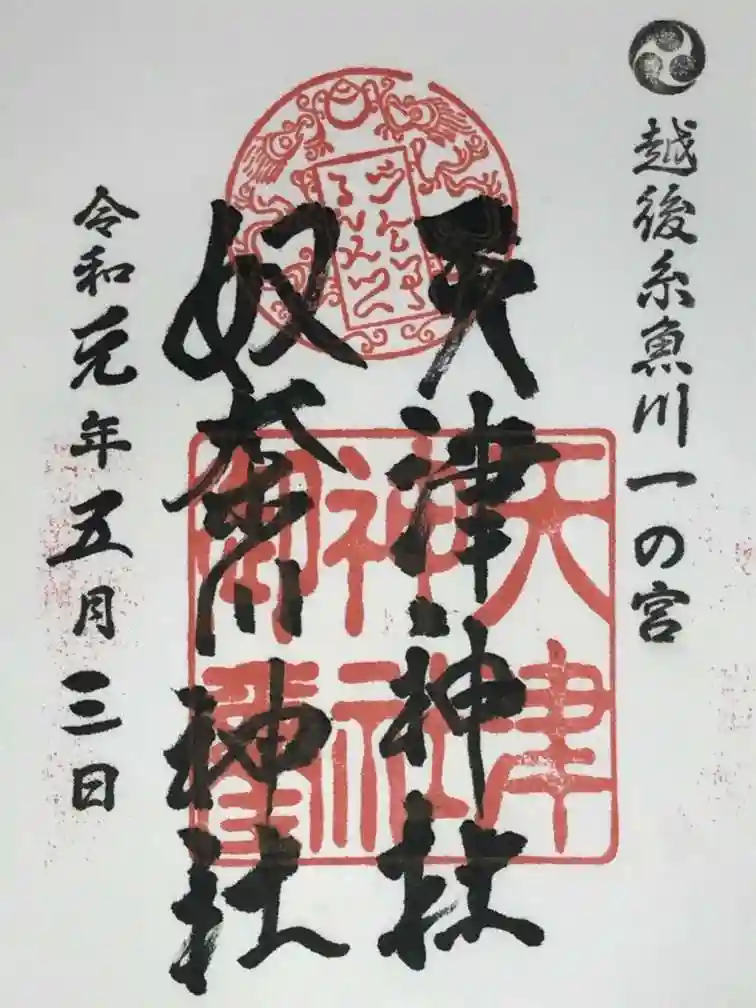 越後糸魚川一の宮
天津神社
奴奈川神社
令和元年五月三日
天津
神社
御璽